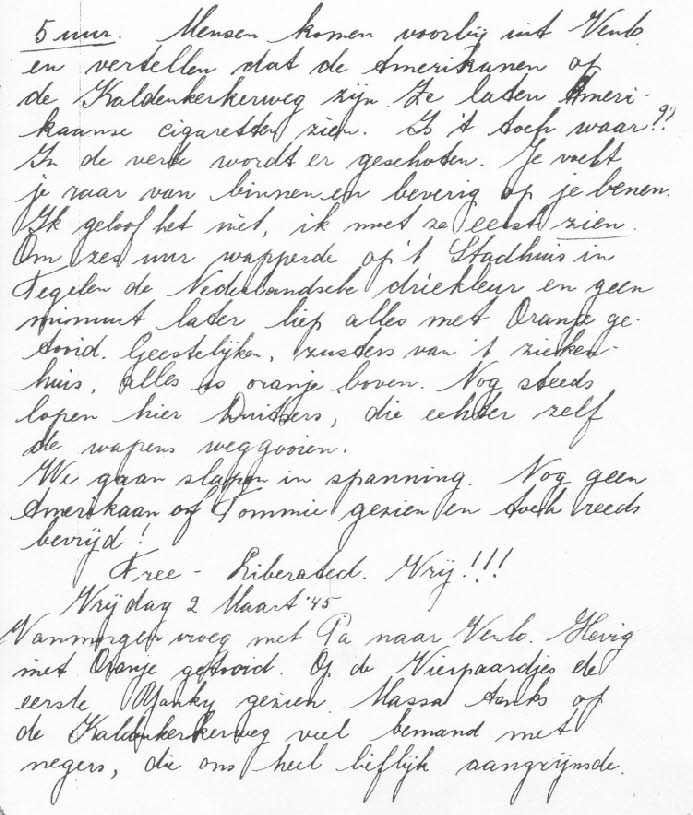 5 uur. Mensen komen voorbij uit Venlo
en vertellen dat de Amerikanen op
de Kaldenkerkerweg zijn. Ze laten Ameri-
kaanse cigaretten zien. Is 't toch waar??
In de verte wordt er geschoten. Je voelt
je raar van binnen en beverig op je benen.
Ik geloof het niet, ik moet ze eerst zien.
Om zes uur wapperde op 't Stadhuis in
Tegelen de Nederlandsche driekleur en geen
minuut later liep alles met Oranje ge-
tooid. Geestelijken, zusters van 't zieken-
huis, alles is oranje boven. Nog steeds
lopen hier Duitsers, die echter zelf
de wapens weggooien.
We gaan slapen in spanning. Nog geen
Amerikaan of Tommie gezien en toch reeds
bevrijd!
Free - Liberated. Vrij!!!
Vrijdag 2 Maart '45
Vanmorgen vroeg met Pa naar Venlo. Hevig
met Oranje getooid. Op de Vierpaardjes de
eerste Yanky gezien. Massa tanks op
de Kaldenkerkerweg veel bemand met
negers, die ons heel lieflijk aangrijnsde.